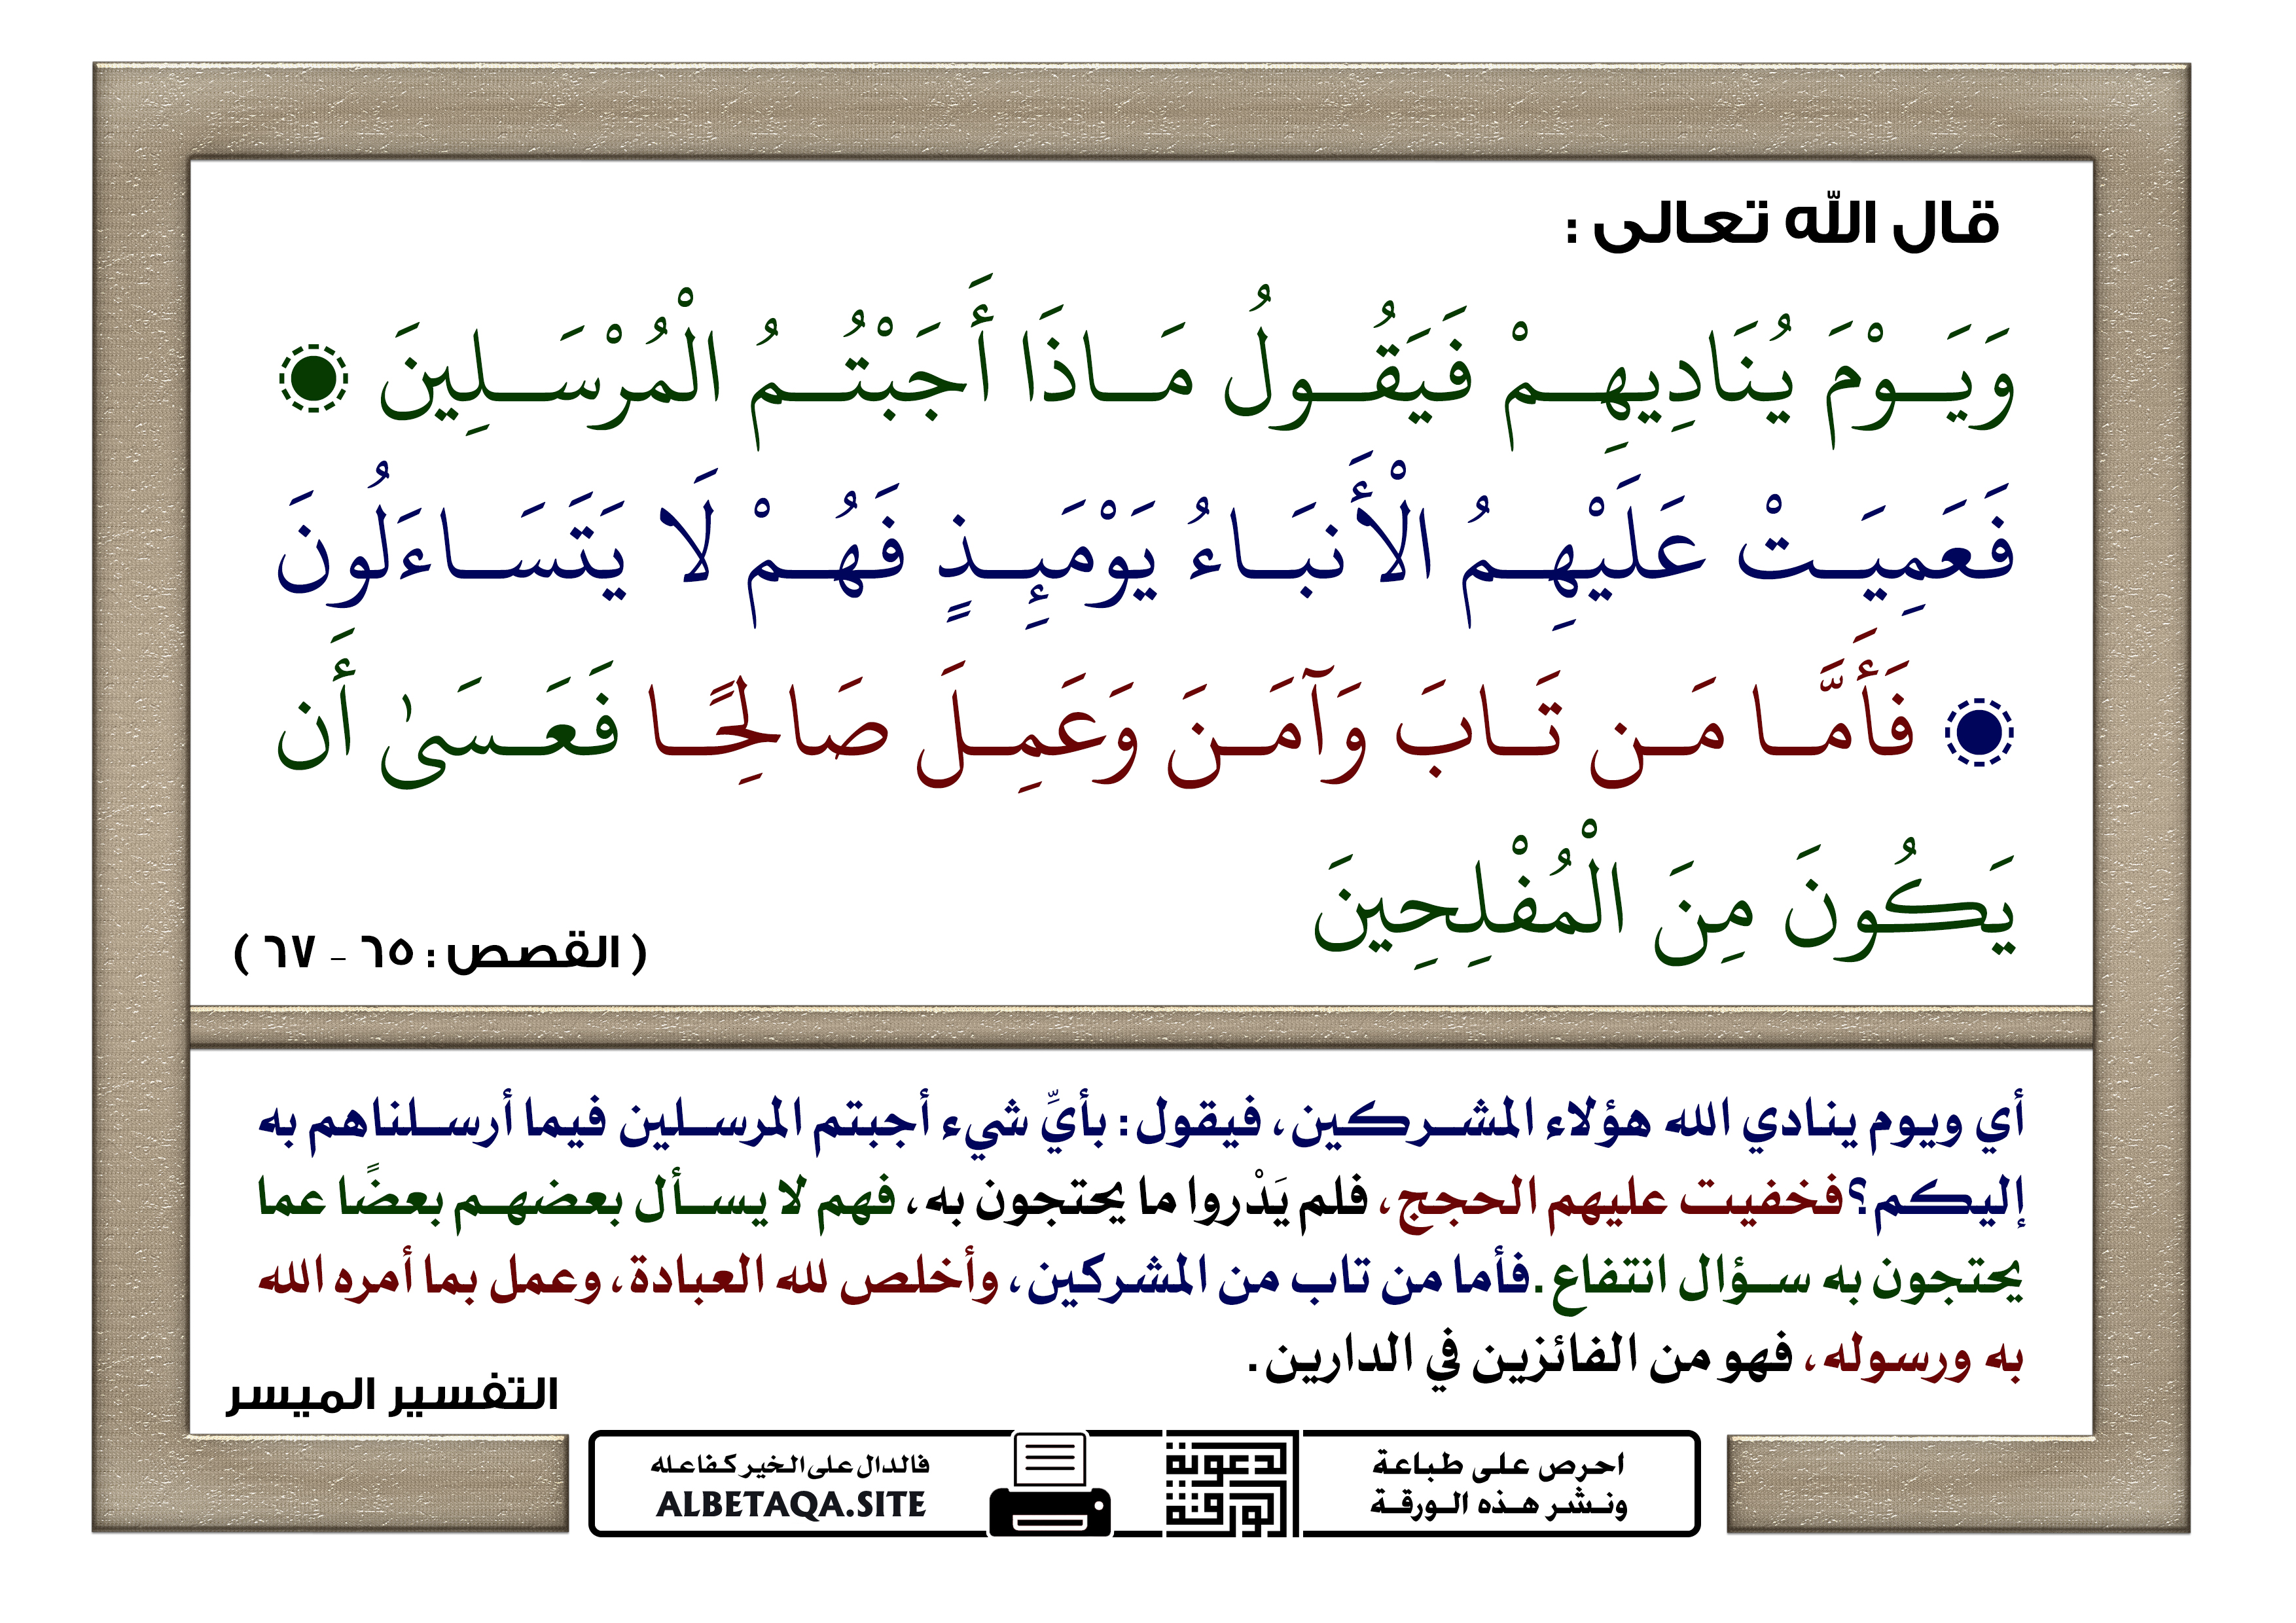 قال الله تعالى :
وَيَوْمَ يُنَادِيهِمْ فَيَقُولُ مَاذَا أَجَبْتُمُ الْمُرْسَلِينَ
فَعَمِيَتْ عَلَيْهِمُ الْأَنبَاءُ يَوْمَئِذٍ فَهُمْ لَا يَتَسَاءَلُونَ
فَأَمَّا مَن تَابَ وَآمَنَ وَعَمِلَ صَالِحًا فَعَسَىٰ أَن
يَكُونَ مِنَ الْمُفْلِحِينَ
( القصص : ٦٥ - ٦٧ )
أي ويوم ينادي الله هؤلاء المشركين، فيقول: بأيِّ شيء أجبتم المرسلين فيما أرسلناهم به
إليكم؟ فخفيت عليهم الحجج، فلم يَدْروا ما يحتجون به، فهم لا يسأل بعضهم بعضًا عما
يحتجون به سؤال انتفاع. فأما من تاب من المشركين، وأخلص لله العبادة، وعمل بما أمره الله
به ورسوله، فهو من الفائزين في الدارين.
التفسير الميسر
احرص على طباعة
ونشر هذه الورقة
الدعوية
الورقة
فالدال على الخير كفاعله
ALBETAQA.SITE